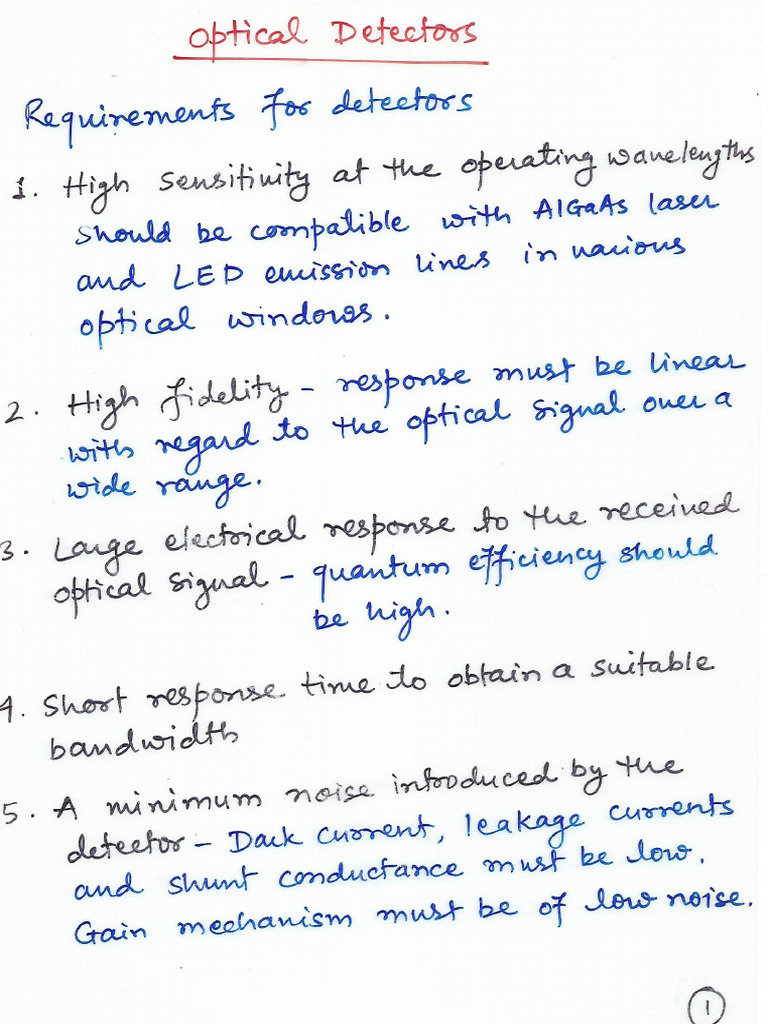 Optical Detectors
Requirements for detectors
1. High Sensitivity at the operating wavelengths
should be compatible with AlGaAs laser
and LED emission lines in various
optical windows.
2. High fidelity - response must be linear
with regard to the optical signal over a
wide range.
3. Large electrical response to the received
optical signal - quantum efficiency should
be high.
4. Short response time to obtain a suitable
bandwidth
5. A minimum noise introduced by the
detector - Dark current, leakage currents
and shunt conductance must be low.
Gain mechanism must be of low noise.
1